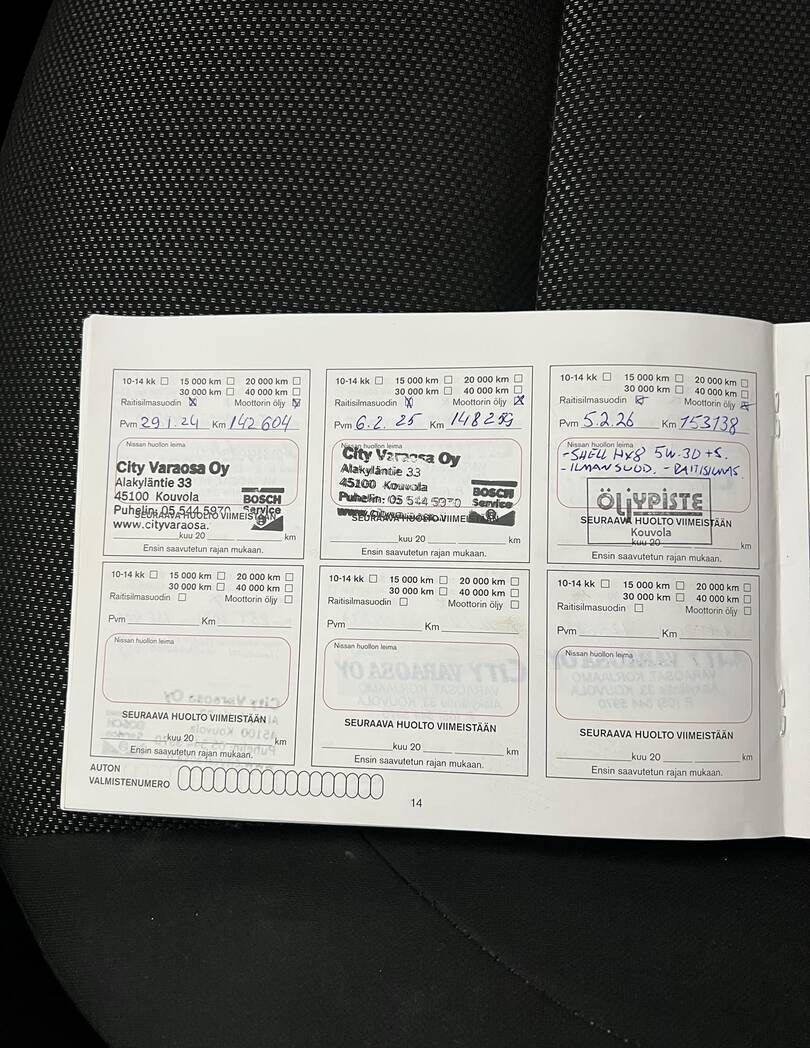 10-14 kk 15 000 km 20 000 km
30 000 km 40 000 km
Raitisilmasuodin Moottorin öljy
Pvm 29.1.24 Km 142 604
Nissan huollon leima
City Varaosa Oy
Alakyläntie 33
45100 Kouvola
Puhelin: 05 544 5970
www.cityvaraosa.
BOSCH
Service
SEURAAVA HUOLTO VIIMEISTÄÄN
kuu 20 km
Ensin saavutetun rajan mukaan.
10-14 kk 15 000 km 20 000 km
30 000 km 40 000 km
Raitisilmasuodin Moottorin öljy
Pvm 6.2. 25 Km
Nissan huollon leima
City Varaosa Oy
Alakyläntie 33
45100 Kouvola
Puhelin: 05 544 5970
BOSCH
Service
SEURAAVA HUOLTO VIIMEISTÄÄN
kuu 20 km
Ensin saavutetun rajan mukaan.
10-14 kk 15 000 km 20 000 km
30 000 km 40 000 km
Raitisilmasuodin Moottorin öljy
Pvm 5.2.26 Km 153138
Nissan huollon leima
-SHELL HX8 5W.30 +S.
-ILMANSUOD. - RAITISILMAS
ÖLJYPISTE
SEURAAVA HUOLTO VIIMEISTÄÄN
Kouvola
kuu 20 km
Ensin saavutetun rajan mukaan.
10-14 kk 15 000 km 20 000 km
30 000 km 40 000 km
Raitisilmasuodin Moottorin öljy
Pvm Km
Nissan huollon leima
SEURAAVA HUOLTO VIIMEISTÄÄN
kuu 20 km
Ensin saavutetun rajan mukaan.
10-14 kk 15 000 km 20 000 km
30 000 km 40 000 km
Raitisilmasuodin Moottorin öljy
Pvm Km
Nissan huollon leima
SEURAAVA HUOLTO VIIMEISTÄÄN
kuu 20 km
Ensin saavutetun rajan mukaan.
10-14 kk 15 000 km 20 000 km
30 000 km 40 000 km
Raitisilmasuodin Moottorin öljy
Pvm Km
Nissan huollon leima
SEURAAVA HUOLTO VIIMEISTÄÄN
kuu 20 km
Ensin saavutetun rajan mukaan.
AUTON
VALMISTENUMERO
14